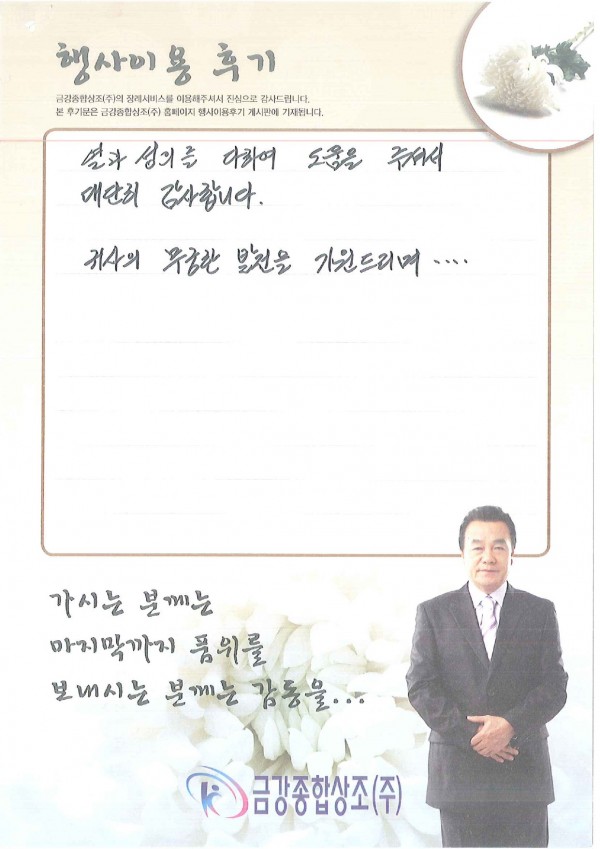 행사이용 후기
금강종합상조(주)의 장례서비스를 이용해주셔서 진심으로 감사드립니다.
본 후기문은 금강종합상조(주) 홈페이지 행사이용후기 게시판에 기재됩니다.
열과 성의를 다하여 도움을 주셔서
대단히 감사합니다.
귀사의 무궁한 발전을 기원드리며 ....
가시는 분께는
마지막까지 품위를
보내시는 분께는 감동을...
금강종합상조(주)